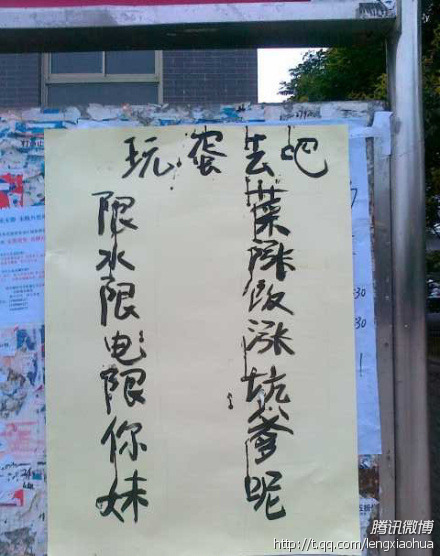 玩蛋去吧
菜涨饭涨坑爹呢
限水限电限你妹
30
30
!
腾讯微博
http://t.qq.com/lengxiaohua